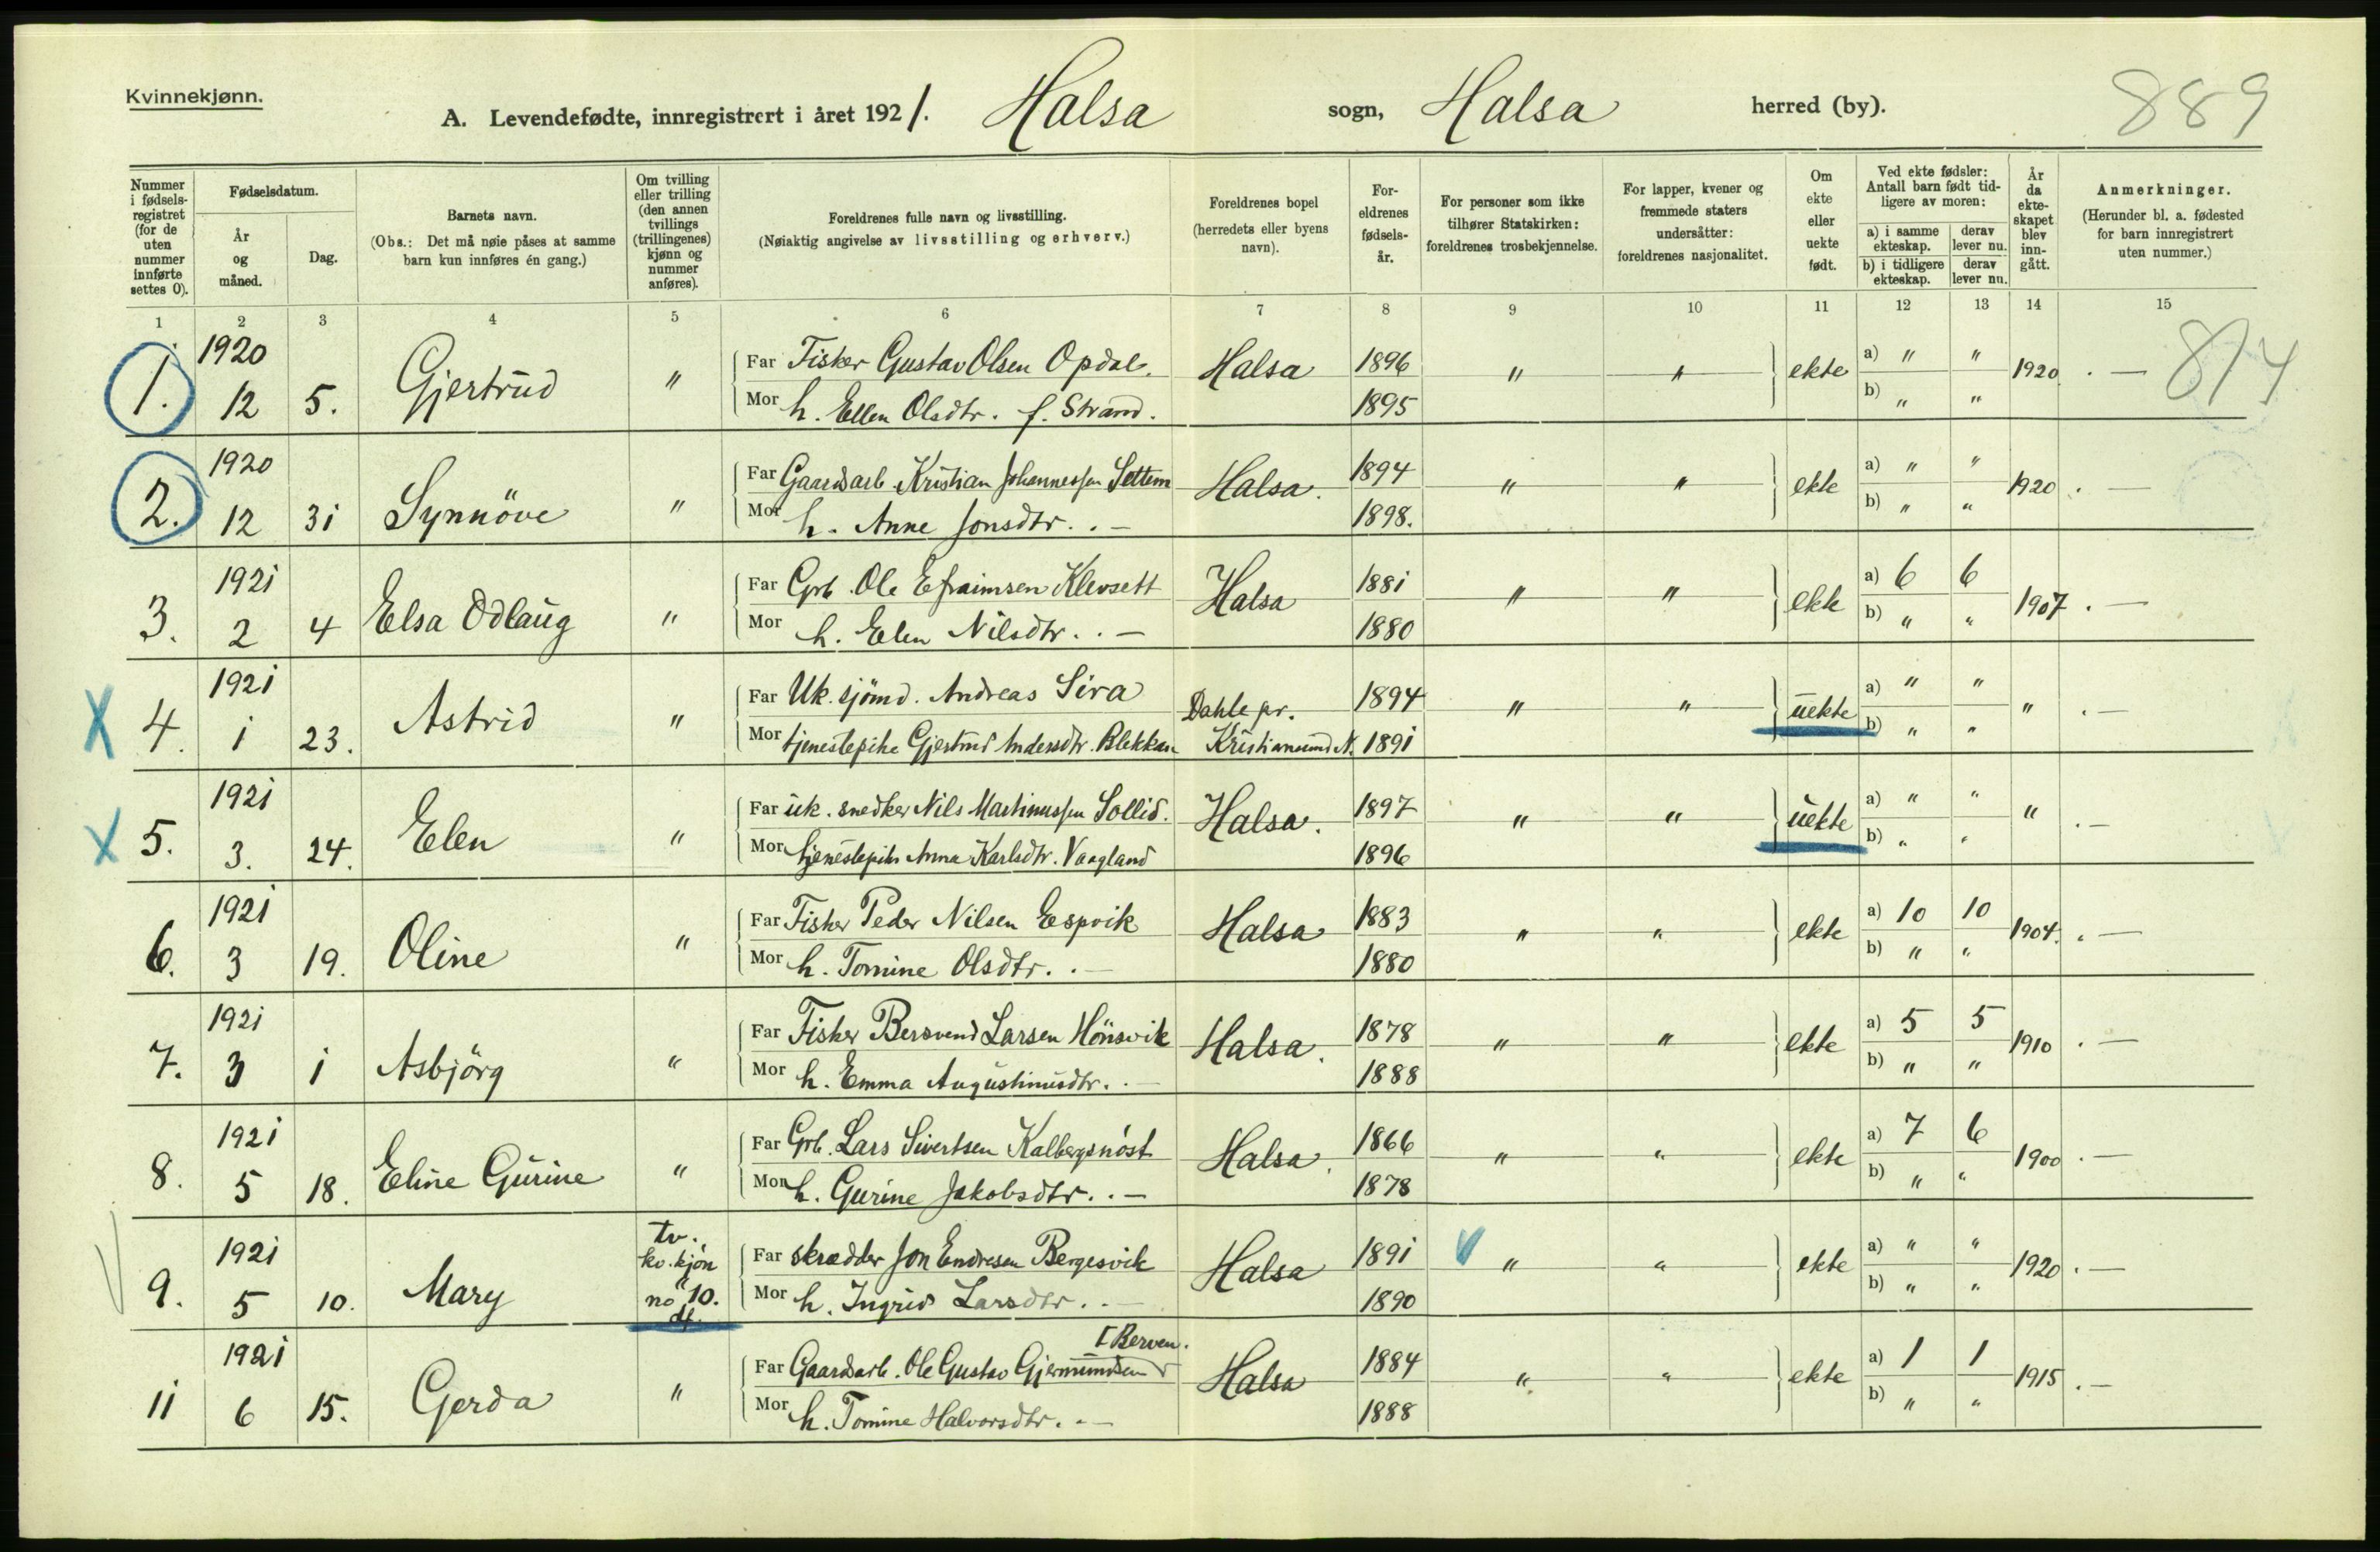 Kvinnekjønn.
A. Levendefødte, innregistrert i året 1921. Halsa sogn, Halsa herred (by). 889
Nummer i fødselsregistret (for de uten nummer innførte settes 0).
Fødselsdatum.
År og måned.
Dag.
Barnets navn.
(Obs.: Det må nøie påses at samme barn kun innføres én gang.)
Om tvilling eller trilling (den annen tvillings (trillingenes) kjønn og nummer anføres).
Foreldrenes fulle navn og livsstilling.
(Nøiaktig angivelse av livsstilling og erhverv.)
Foreldrenes bopel
(herredets eller byens navn).
Foreldrenes fødselsår.
For personer som ikke tilhører Statskirken: foreldrenes trosbekjennelse.
For lapper, kvener og fremmede staters undersåtter: foreldrenes nasjonalitet.
Om ekte eller uekte født.
Ved ekte fødsler: Antall barn født tidligere av moren:
a) i samme ekteskap.
derav lever nu.
b) i tidligere ekteskap.
derav lever nu.
År da ekteskapet blev inngått.
Anmerkninger.
(Herunder bl. a. fødested for barn innregistrert uten nummer.)
1 2 3 4 5 6 7 8 9 10 11 12 13 14 15
1920 Far Fisker Gustav Olsen Opdal. 1896 a) " " 814
1. 12 5. Gjertrud " Halsa " " ekte 1920 . —
Mor h. Ellen Olsdtr. f. Strand. 1895 b) " "
1920 Far Gaardsarb. Kristian Johannessen Settem 1894 a) " "
2. 12 31 Synnöve " Halsa. " " ekte 1920 . —
Mor h. Anne Jonsdtr. . — 1898. b) " "
1921 Far Grb. Ole Efraimsen Klevsett 1881 a) 6 6
3. 2 4 Elsa Odlaug " Halsa " " ekte 1907 . —
Mor h. Elen Nilsdtr. . — 1880 b) " "
1921 Far Uk. sjömd. Andreas Sira Dahle pr. 1894 a) " "
X 4. 1 23. Astrid " " " uekte " . —
Mor tjenestepike Gjertrud Andersdtr. Blekkan Kristiansund N. 1891 b) " "
1921 Far uk. snedker Nils Martinussen Sollid. 1897 a) " "
X 5. 3. 24. Elen " Halsa. " " uekte " . —
Mor tjenestepike Anna Karlsdtr. Vaagland 1896 b) " "
1921 Far Fisker Peder Nilsen Espvik 1883 a) 10 10
6. 3 19. Oline " Halsa " " ekte 1904. . —
Mor h. Tomine Olsdtr. . — 1880 b) " "
1921 Far Fisker Bersvend Larsen Hönsvik 1878 a) 5 5
7. 3 1 Asbjörg " Halsa. " " ekte 1910 . —
Mor h. Emma Augustinusdtr. . — 1888 b) " "
1921 Far Grb. Lars Sivertsen Kalbergsnöst 1866 a) 7 6
8. 5 18. Eline Gurine " Halsa. " " ekte 1900 . —
Mor h. Gurine Jakobsdtr. . — 1878 b) " "
1921 tv. kv. kjön no 10. Far skrædder Jon Endresen Bergesvik 1891 a) " "
9. 5 10. Mary Halsa " " ekte 1920 . —
Mor h. Ingrid Larsdtr. . — 1890 b) " "
[Berven.
1921 Far Gaardsarb. Ole Gustav Gjermundsen 1884 a) 1 1
11 6 15. Gerda " Halsa " " ekte 1915 . —
Mor h. Tomine Halvorsdtr. . — 1888 b) " "